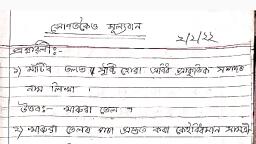 সোণতকৈও মূল্যবান
২/২/২২
প্ৰশ্নাৱলী :-
১) মাটিৰ তলত সৃষ্টি হোৱা এবিধ প্ৰাকৃতিক সম্পদৰ
নাম লিখা ।
উত্তৰ:- খাৰুৱা তেল ।
২) খাৰুৱা তেলৰ পৰা প্ৰস্তুত কৰা কেইবিধমান সামগ্ৰী